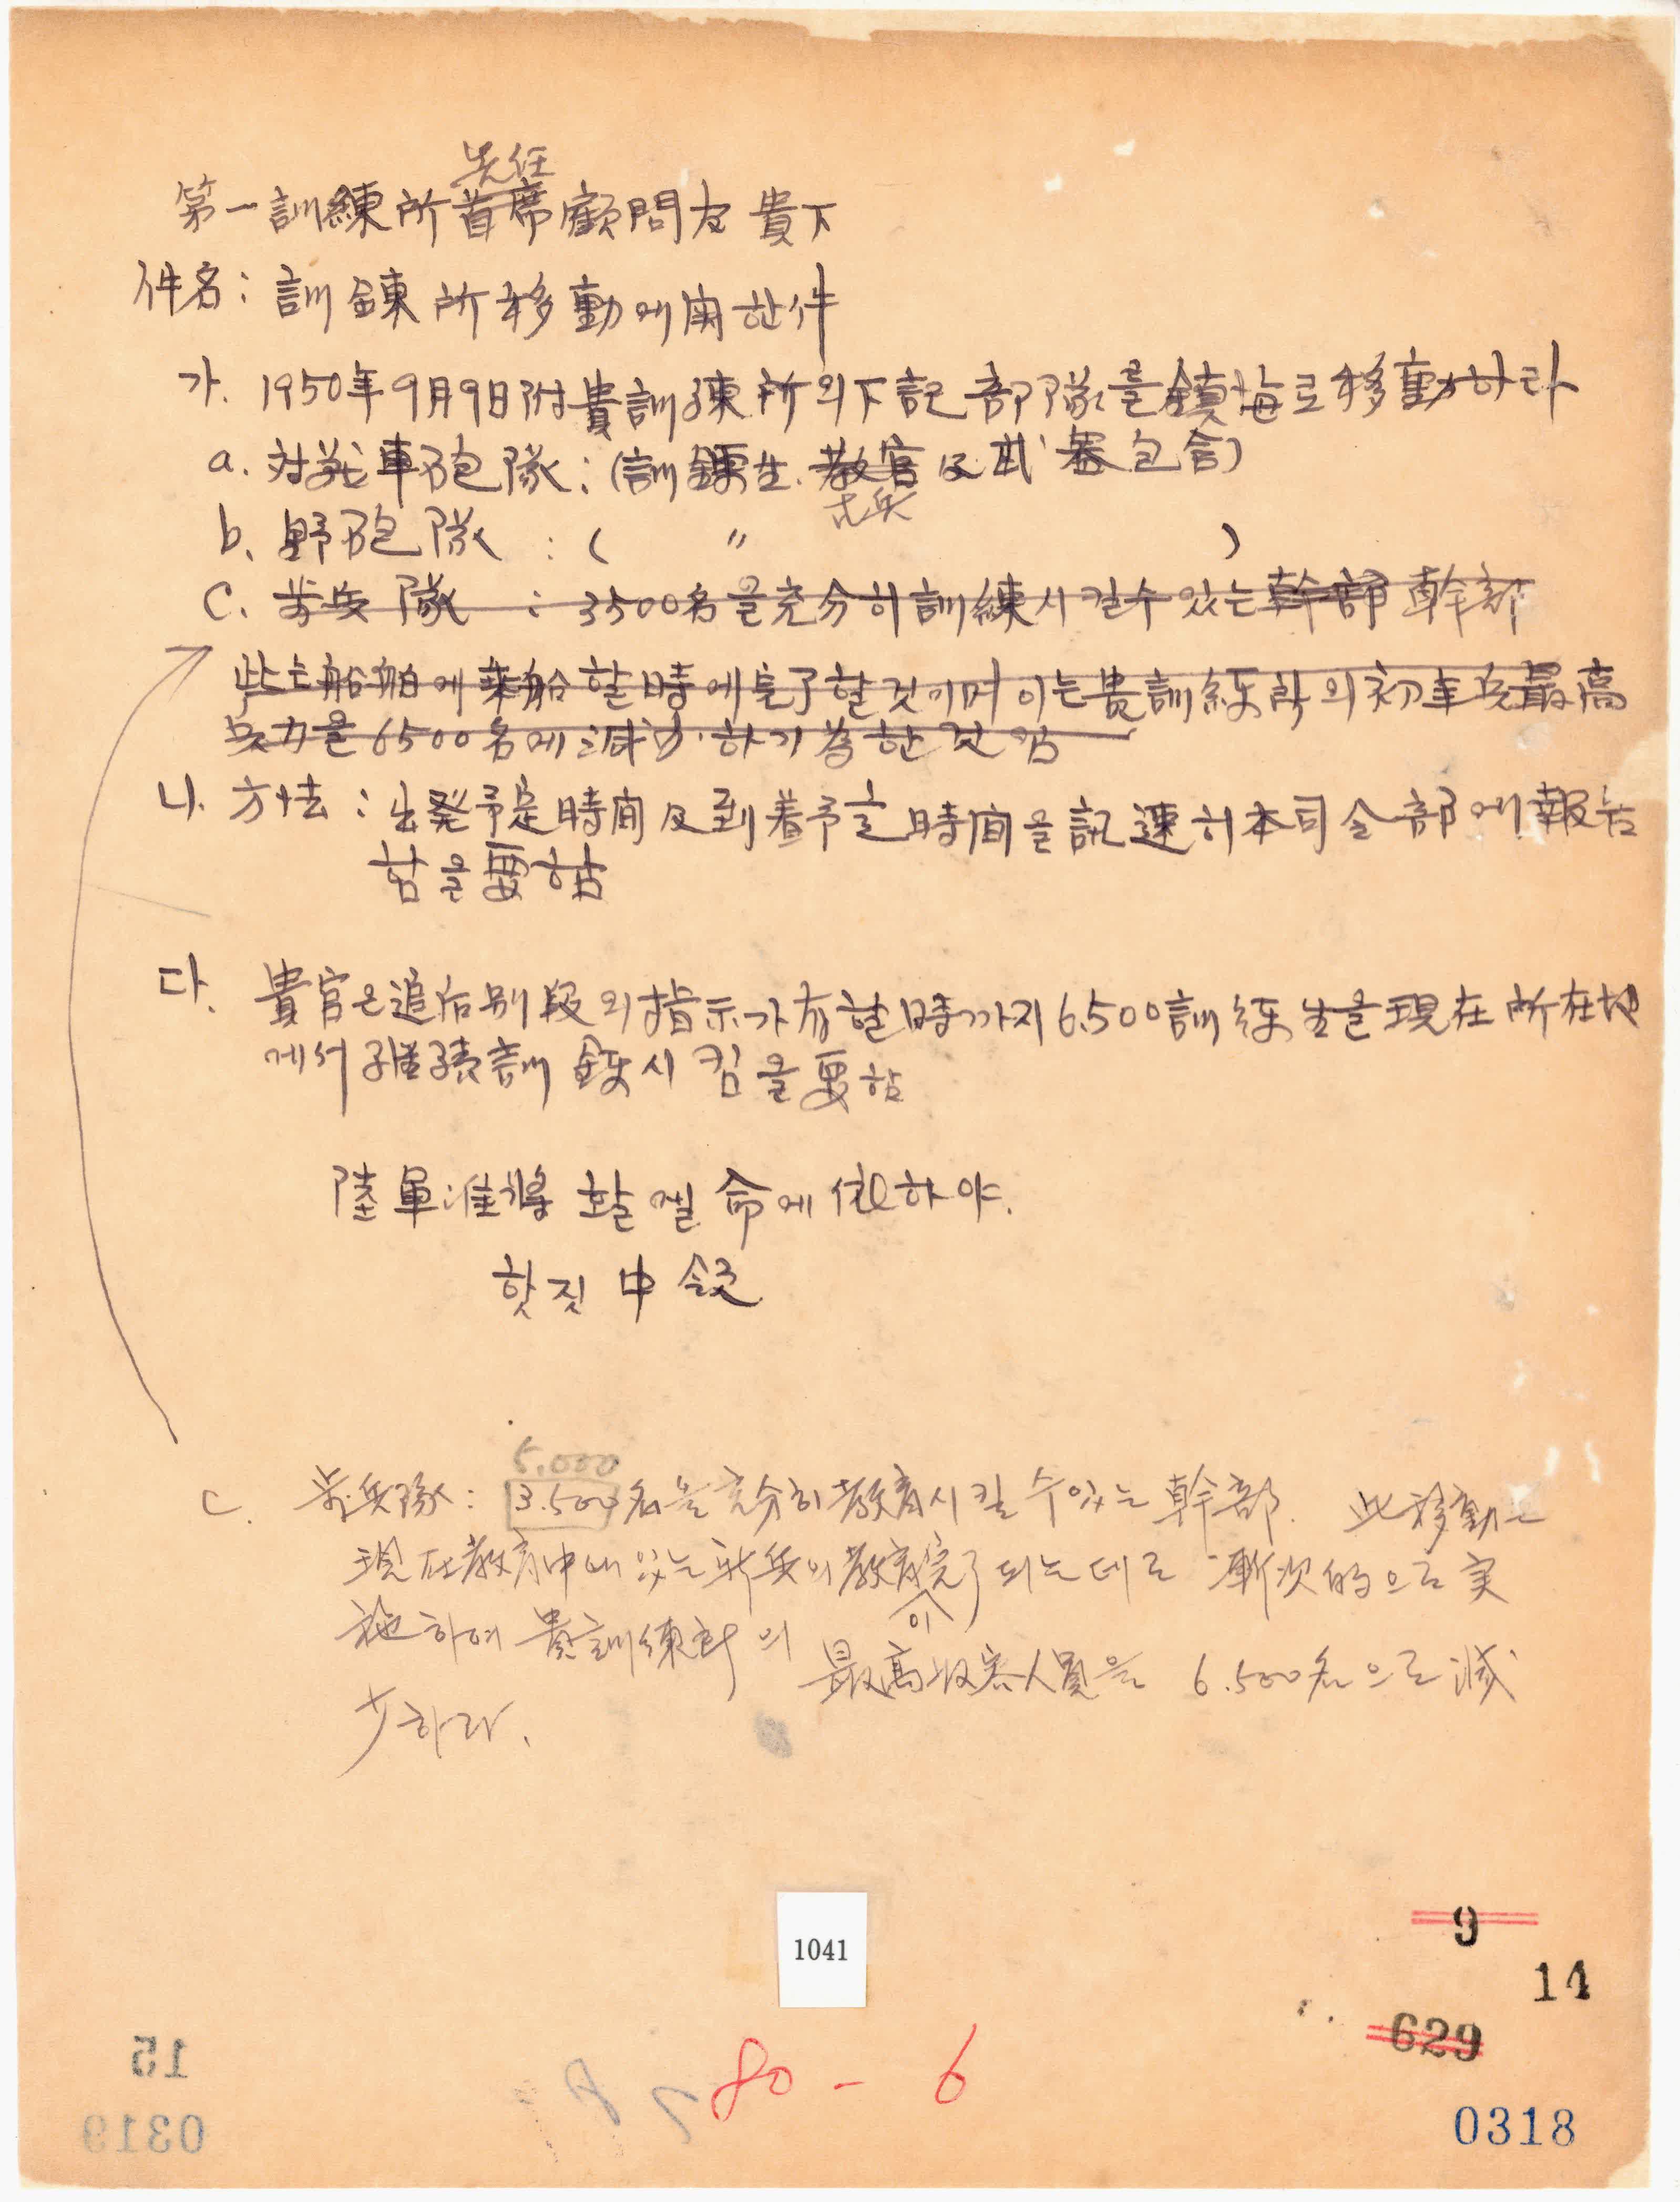 先任
第一訓練所首席顧問官 貴下
件名: 訓鍊所移動에関한件
가. 1950年9月9日附貴訓練所의下記部隊를鎮海로移動하라
a. 対戦車砲隊: (訓鍊生. 教官及武器包含)
古兵
b. 野砲隊 : ( 〃 )
C. 歩兵隊 : 3500名을充分히訓練시킬수있는幹部 幹部
此는船舶에乗船할時에完了할것이며이는貴訓練所의初年兵最高
兵力을6500名에減少하기為한것임
나. 方法: 出発予定時間及到着予定時間을訊速히本司令部에報告
함을要함
다. 貴官은追后別段의指示가有할時까지6.500訓練生을現在所在地
에서継続訓鍊시킴을要함
陸軍准将 황멜 命에依하야.
핫짓 中領
5.000
C. 歩兵隊: 3.500名을充分히教育시킬수있는幹部. 此移動은
現在教育中에있는新兵의教育完了되는데로 漸次的으로実
이
施하여 貴訓練所의 最高収容人員을 6.500名으로減
少하라.
1041
9
14
629
80-6
0318
15
0319